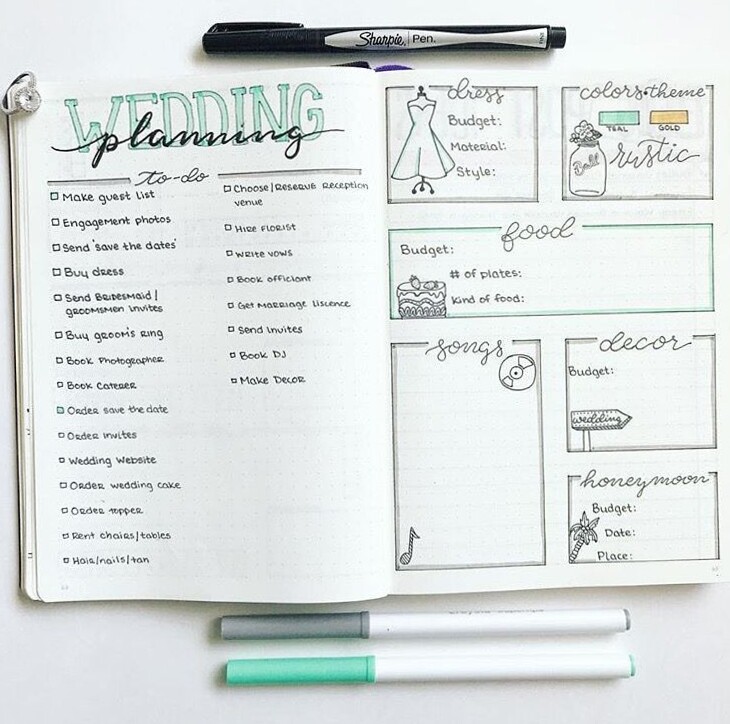 Sharpie. Pen.
WEDDING
planning
to-do
Make guest list
Engagement photos
Send 'save the dates'
Buy dress
Send Bridesmaid /
groomsmen invites
Buy groom's ring
Book Photographer
Book Caterer
Order save the date
Order invites
Wedding Website
Order wedding cake
Order topper
Rent chairs/tables
Hair/nails/tan
Choose/Reserve Reception
venue
Hire Florist
Write vows
Book officiant
Get Marriage liscence
Send Invites
Book DJ
Make Decor
dress
Budget:
Material:
Style:
colors+theme
TEAL
GOLD
Ball
rustic
food
Budget:
# of plates:
Kind of food:
songs
decor
Budget:
wedding
honeymoon
Budget:
Date:
Place: